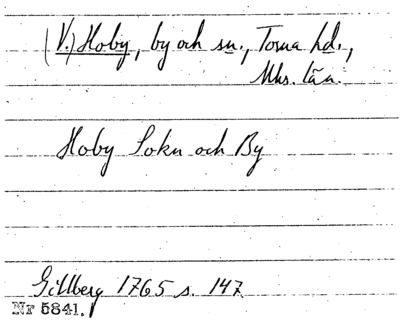 (V.) Hoby, by och sn., Torna hd.,
Mhs. län.
Hoby Sokn och By
Gillberg 1765 s. 147
Nr 5841.